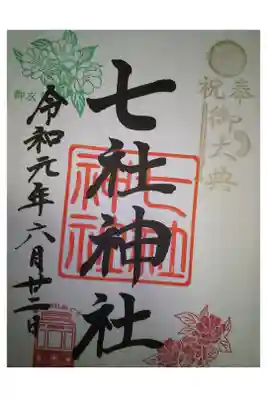 奉祝
御大典
七社神社
七社神社
令和元年六月廿二日